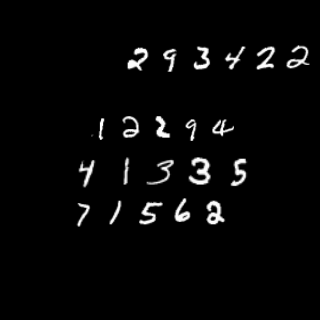 293422
12294
41335
71562